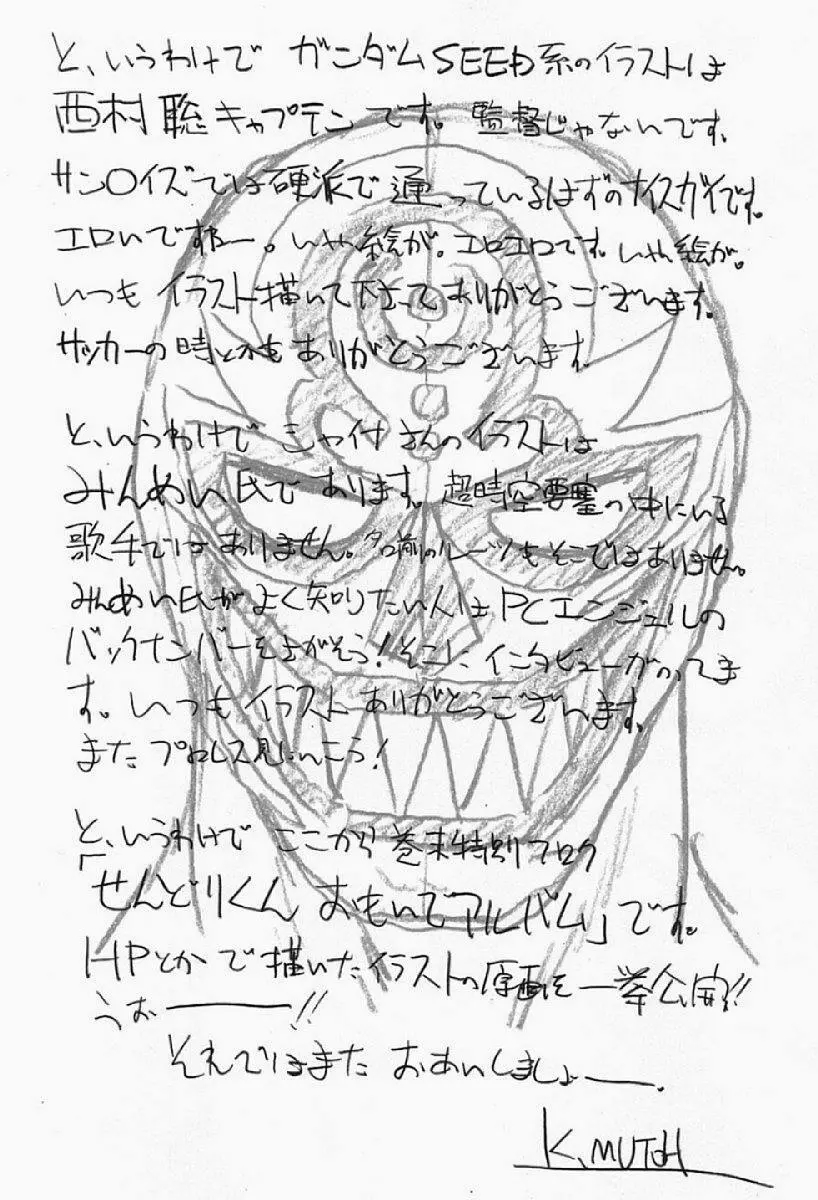 と、いうわけで ガンダムSEED系のイラストは
西村 聡 キャプテンです。監督じゃないです。
サン〇イズでは硬派で通っているはずのナイスガイです。
エロいですねー。いや絵が。エロエロです。いや絵が。
いつも イラスト描いて下さって ありがとうございます。
サッカーの時とかもありがとうございます。
と、いうわけで さんのイラストは
みんめい氏で あります。超時空要塞の中にいる
歌手では ありません。名前のルーツもそこではありません。
みんめい氏が よく知りたい人は PCエンジェルの
バックナンバーをさがそう!そこに インタビューがのってま
す。いつも イラスト ありがとうございます。
また プロレス見にいこう!
と、いうわけで ここから 巻末特別フロク
「せんどりくん おもいでアルバム」です。
HPとか で描いた イラストの原画を 一挙公開!!
うおー!!
それではまた おあいしましょー。
K.MUTOH